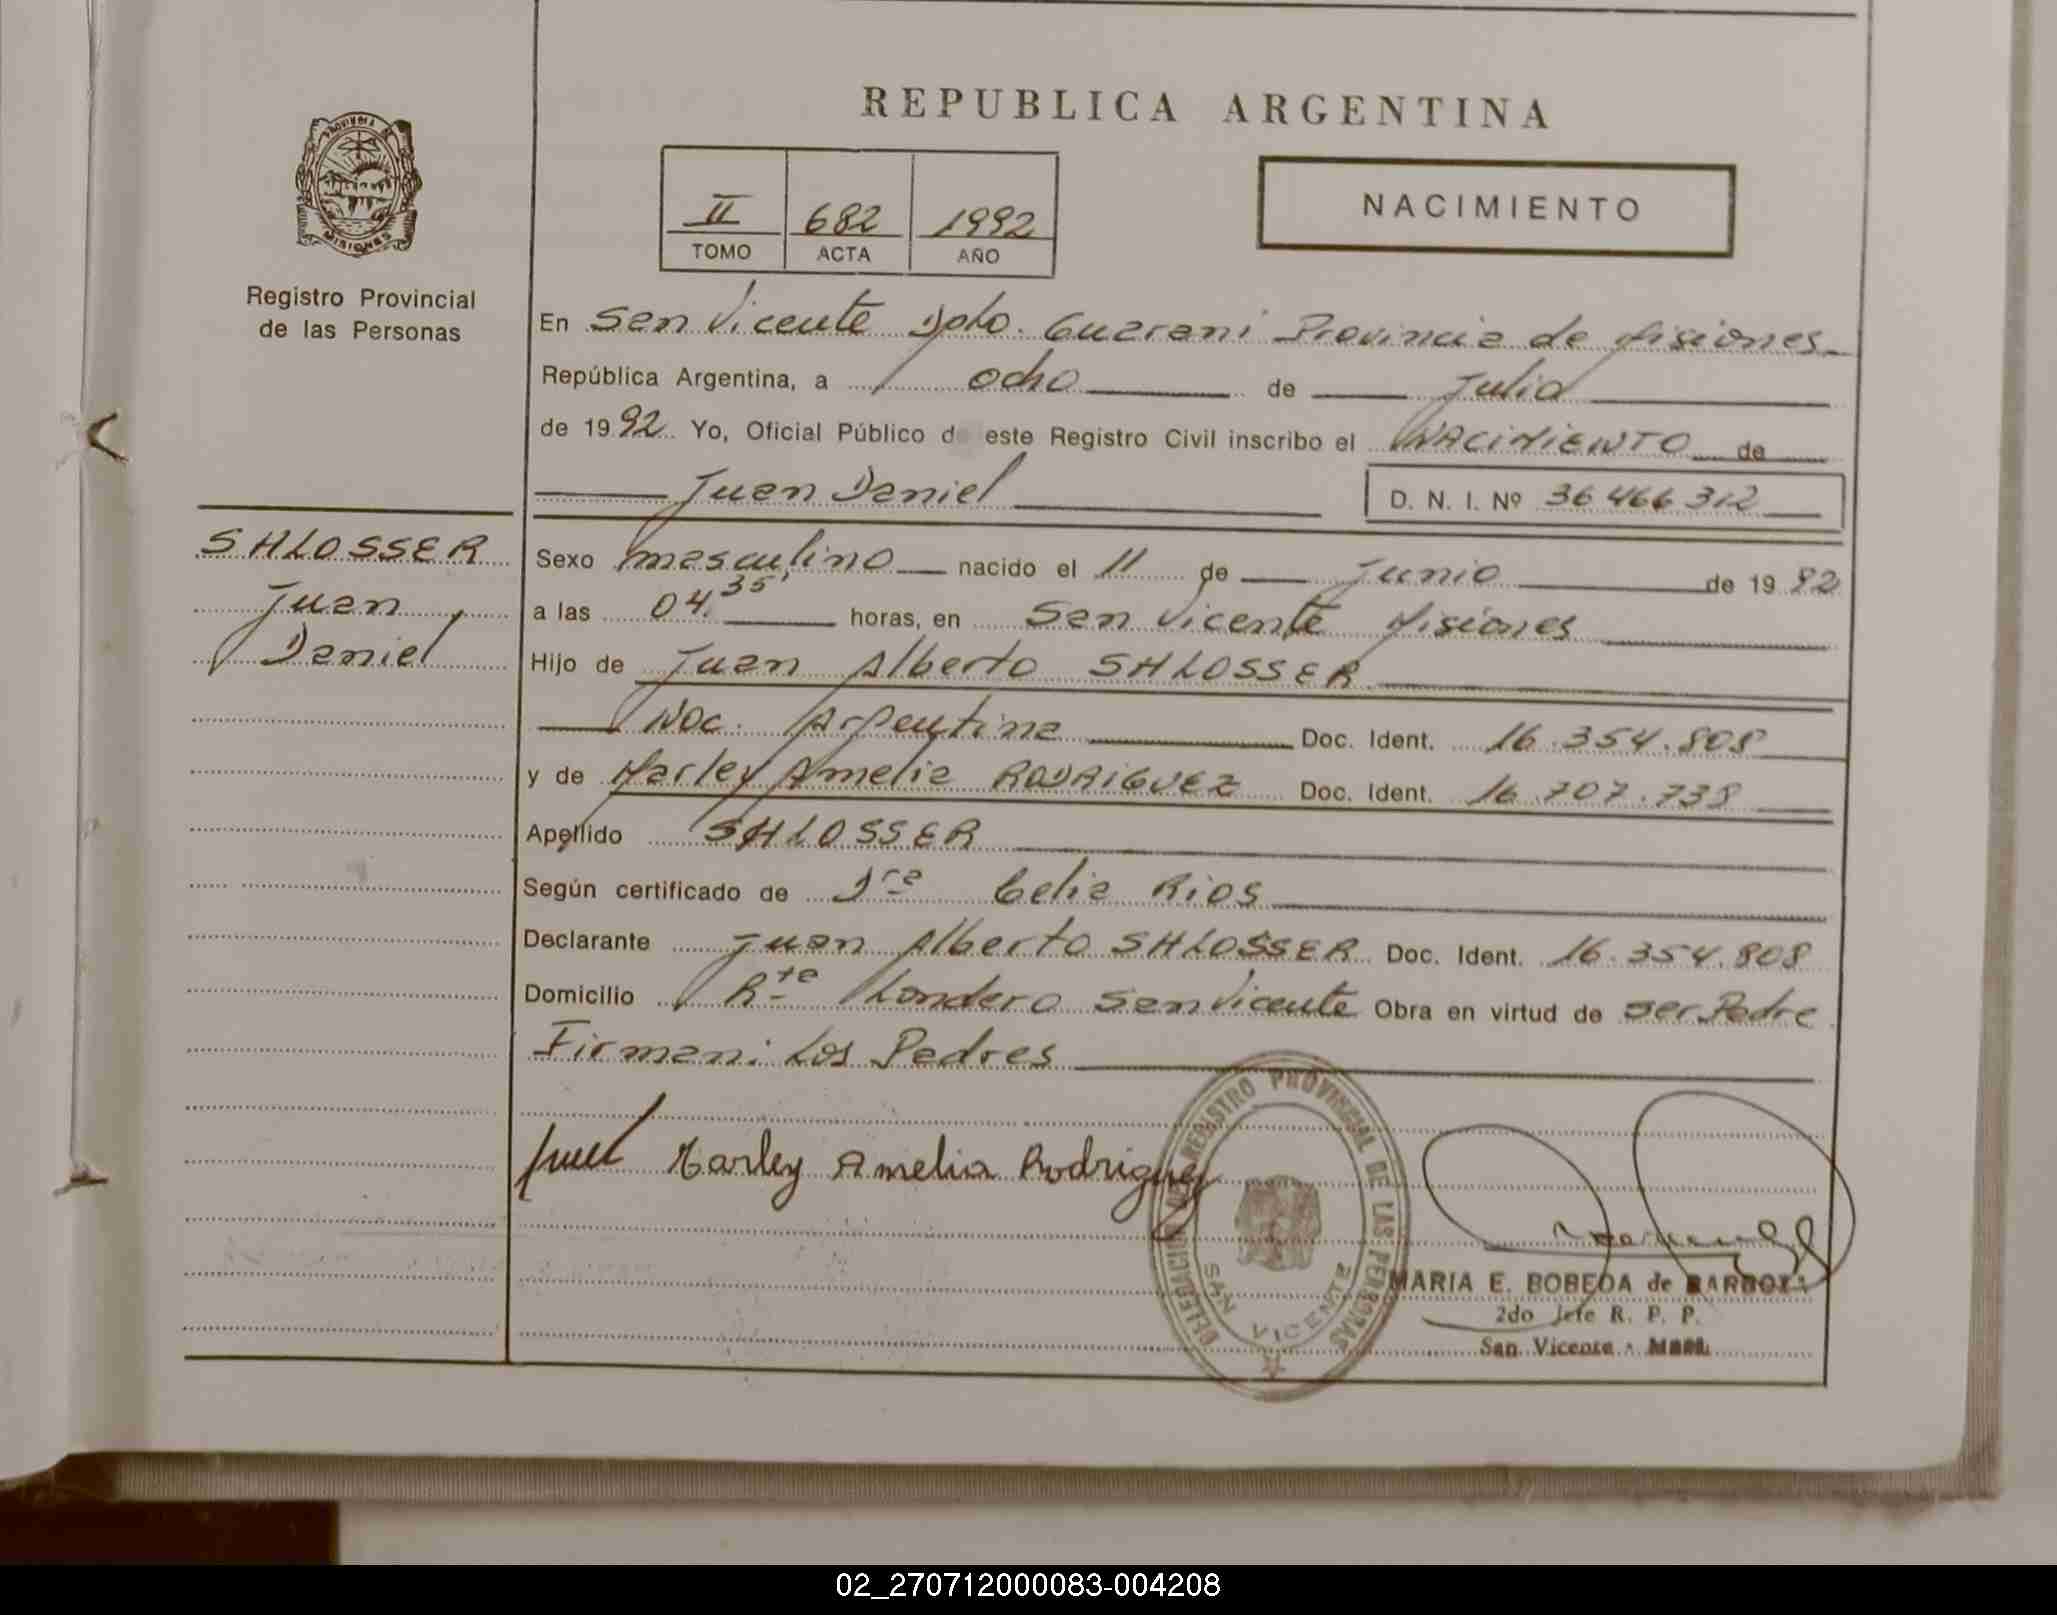 REPUBLICA ARGENTINA
PROVINCIA DE
MISIONES
Registro Provincial
de las Personas
II 682 1992
TOMO ACTA AÑO
NACIMIENTO
En San Vicente Dpto. Guarani Provincia de Misiones
República Argentina, a ocho de Julio
de 1992 Yo, Oficial Público de este Registro Civil inscribo el NACIMIENTO de
Juan Daniel D. N. I. Nº 36 466 312
SHLOSSER
Juan
Daniel
Sexo masculino nacido el 11 de Junio de 1992
a las 04.35' horas, en San Vicente Misiones
Hijo de Juan Alberto SHLOSSER
Nac. Argentina Doc. Ident. 16.354.808
y de Marley Amelia RODRIGUEZ Doc. Ident. 16.707.738
Apellido SHLOSSER
Según certificado de Dra Celia Rios
Declarante Juan Alberto SHLOSSER Doc. Ident. 16.354.808
Domicilio Londero San Vicente Obra en virtud de ser Padre
Firman: Los Padres
Marley Amelia Rodriguez
DELEGACION DEL REGISTRO PROVINCIAL DE LAS PERSONAS
SAN VICENTE
MARIA E. BOBEDA de BARBOZA
2do Jefe R. P. P.
San Vicente -
02_270712000083-004208